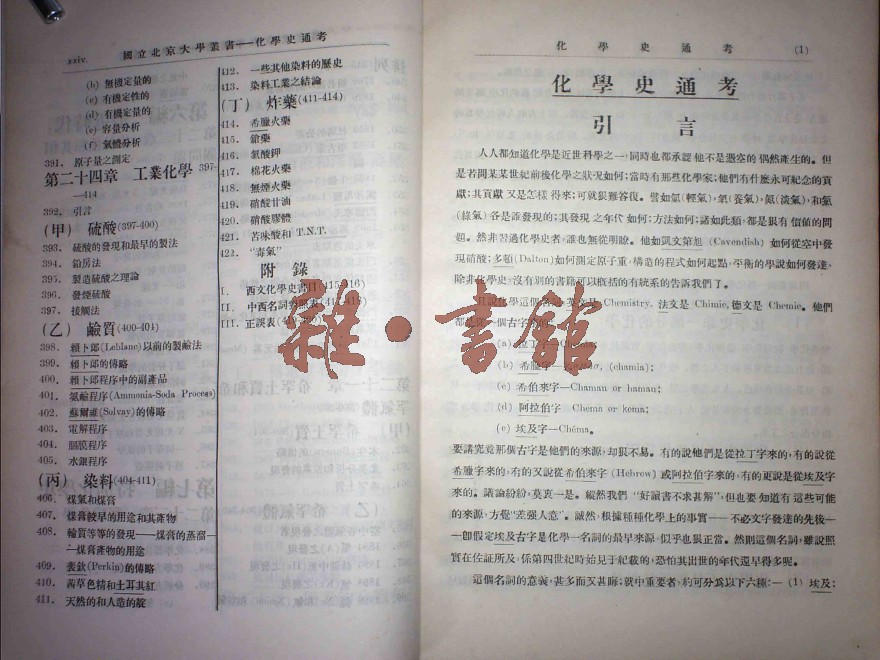 xxiv. 國立北京大學叢書——化學史通考
(b) 無機定量的
(c) 有機定性的
(d) 有機定量的
(e) 容量分析
(f) 氣體分析
391. 原子量之測定
第二十四章 工業化學 397
—414
392. 引言
(甲) 硫酸 (397-400)
393. 硫酸的發現和最早的製法
394. 鉛房法
395. 製造硫酸之理論
396. 發煙硫酸
397. 接觸法
(乙) 鹼質 (400-404)
398. 賴卜郎 (Leblanc) 以前的製鹼法
399. 賴卜郎的傳略
400. 賴卜郎程序中的副產品
401. 氨鹼程序 (Ammonia-Soda Process)
402. 蘇爾維 (Solvay) 的傳略
403. 電解程序
404. 隔膜程序
405. 水銀程序
(丙) 染料 (404-411)
406. 煤氣和煤膏
407. 煤膏較早的用途和其產物
408. 輪質等等的發現——煤膏的蒸溜—
—煤膏產物的用途
409. 裴欽 (Perkin) 的傳略
410. 茜草色精和土耳其紅
411. 天然的和人造的靛
412. 一些其他染料的歷史
413. 染料工業之結論
(丁) 炸藥 (411-414)
414. 希臘火藥
415. 鎗藥
416. 氯酸鉀
417. 棉花火藥
418. 無煙火藥
419. 硝酸甘油
420. 硝酸膠體
421. 苦味酸和 T.N.T.
422. “毒氣”
附 錄
I. 西文化學史書目 (415-416)
II. 中西名詞對照表
III. 正誤表
雜·書館
化 學 史 通 考 (1)
化 學 史 通 考
引 言
人人都知道化學是近世科學之一，同時也都承認他不是憑空的偶然產生的。但
是若問某某世紀前後化學之狀况如何；當時有那些化學家；他們有什麽永可紀念的貢
獻；其貢獻又是怎樣得來；可就狠難答復。譬如氫 (輕氣)，氧 (養氣)，氮 (淡氣)，和氯
(綠氣) 各是誰發現的；其發現之年代如何；方法如何；諸如此類，都是狠有價値的問
題。然非習過化學史者，誰也無從明瞭。他如凱文第旭 (Cavendish) 如何從空中發
現硝酸；多頓 (Dalton) 如何測定原子重，構造的程式如何起點，平衡的學說如何發達，
除非化學史，沒有別的書籍可以概括的有統系的告訴我們了。
且說化學這個名詞，英文是 Chemistry，法文是 Chimie，德文是 Chemie。他們
都從一個古字
(a) 拉丁字
(b) 希臘字 (chamia)；
(c) 希伯來字—Chaman or haman；
(d) 阿拉伯字 Chema or kema；
(e) 埃及字—Chêma。
要講究竟那個古字是他們的來源，却狠不易。有的說他們是從拉丁字來的，有的說從
希臘字來的，有的又說從希伯來字 (Hebrew) 或阿拉伯字來的，有的更說是從埃及字
來的。議論紛紛，莫衷一是。縱然我們 “好讀書不求甚解”，但也要知道有這些可能
的來源，方覺“差强人意”。誠然，根據種種化學上的事實——不必文字發達的先後—
—卽假定埃及古字是化學一名詞的最早來源，似乎也狠正當。然則這個名詞，雖說照
實在佐証所及，係第四世紀時始見于紀載的，恐怕其出世的年代還早得多呢。
這個名詞的意義，甚多而又甚晦；就中重要者，約可分爲以下六種：— (1) 埃及；